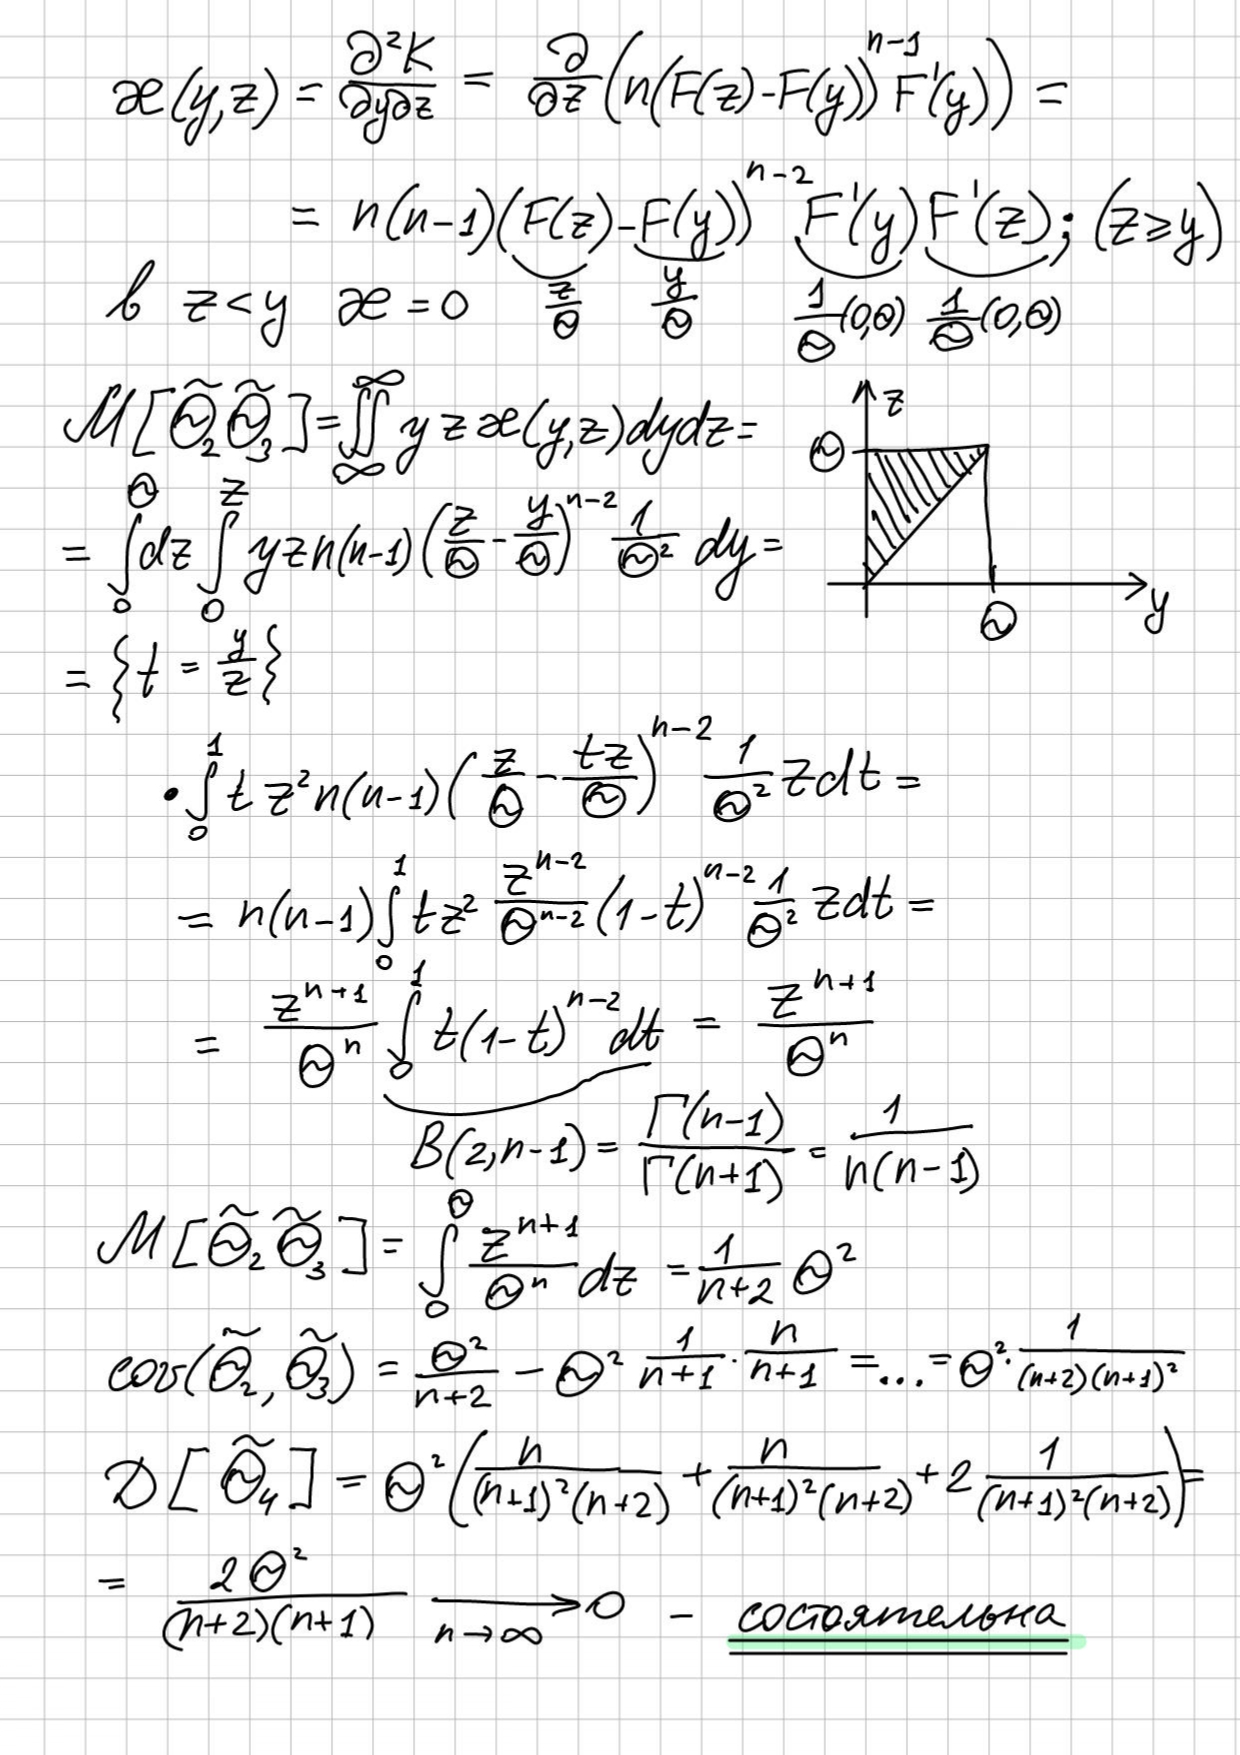 æ(y,z) = ∂²K/∂y∂z = ∂/∂z (n(F(z)-F(y))^{n-1} F'(y)) =
= n(n-1)(F(z)-F(y))^{n-2} F'(y) F'(z); (z≥y)
в z<y æ=0 z/Θ y/Θ 1/Θ(0,Θ) 1/Θ(0,Θ)
M[Θ̃₂Θ̃₃] = ∬_{∞}^{∞} y z æ(y,z)dydz =
z
Θ
y
Θ
= ∫_0^Θ dz ∫_0^z yzn(n-1)(z/Θ - y/Θ)^{n-2} 1/Θ² dy =
= {t = y/z}
• ∫_0^1 t z² n(n-1)(z/Θ - tz/Θ)^{n-2} 1/Θ² zdt =
= n(n-1)∫_0^1 tz² z^{n-2}/Θ^{n-2} (1-t)^{n-2} 1/Θ² zdt =
= z^{n+1}/Θ^n ∫_0^1 t(1-t)^{n-2}dt = z^{n+1}/Θ^n
B(2,n-1) = Γ(n-1)/Γ(n+1) = 1/n(n-1)
M[Θ̃₂Θ̃₃] = ∫_0^Θ z^{n+1}/Θ^n dz = 1/(n+2) Θ²
cov(Θ̃₂,Θ̃₃) = Θ²/(n+2) - Θ² 1/(n+1) · n/(n+1) = ... = Θ² · 1/((n+2)(n+1)²)
D[Θ̃₄] = Θ²(n/((n+1)²(n+2)) + n/((n+1)²(n+2)) + 2 1/((n+1)²(n+2))) =
= 2Θ²/((n+2)(n+1)) →_{n→∞} 0 - состоятельна